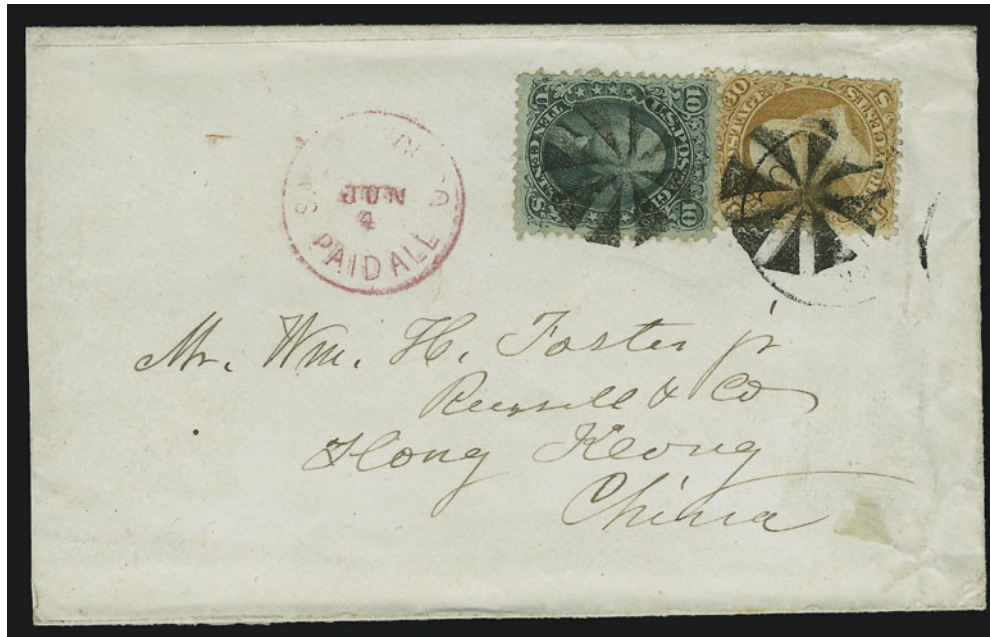 JUN
4
PAID ALL
10 U.S. POSTAGE 10
TEN CENTS
30
POSTAGE
CENTS
Mr. Wm. H. Foster jr
Russell & Co
Hong Kong
China